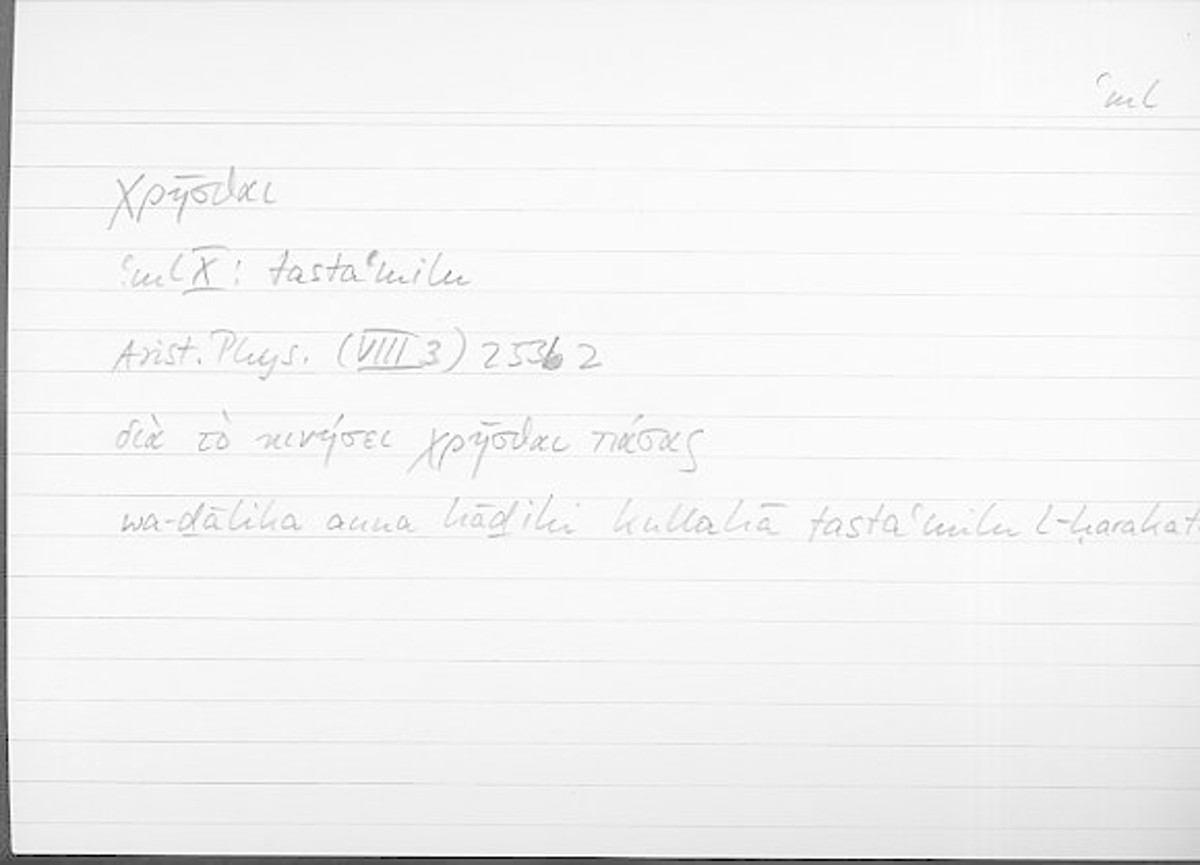 ʿml
χρῆσθαι
ʿml X: tastaʿmilu
Arist. Phys. (VIII 3) 253b2
διὰ τὸ κινήσει χρῆσθαι πάσας
wa-ḏālika anna hāḏihi kullahā tastaʿmilu l-ḥarakat